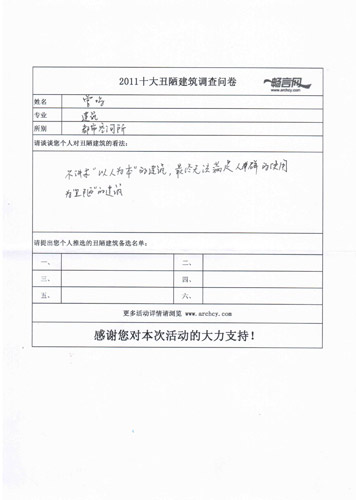 2011十大丑陋建筑调查问卷
畅言网
www.archcy.com
姓名
专业 建筑
所别
请谈谈您个人对丑陋建筑的看法：
不讲求“以人为本”的建筑，最终无法满足人群的使用
为“丑陋”的建筑
请提出您个人推选的丑陋建筑备选名单：
一、 二、
三、 四、
五、 六、
更多活动详情请浏览 www.archcy.com
感谢您对本次活动的大力支持！